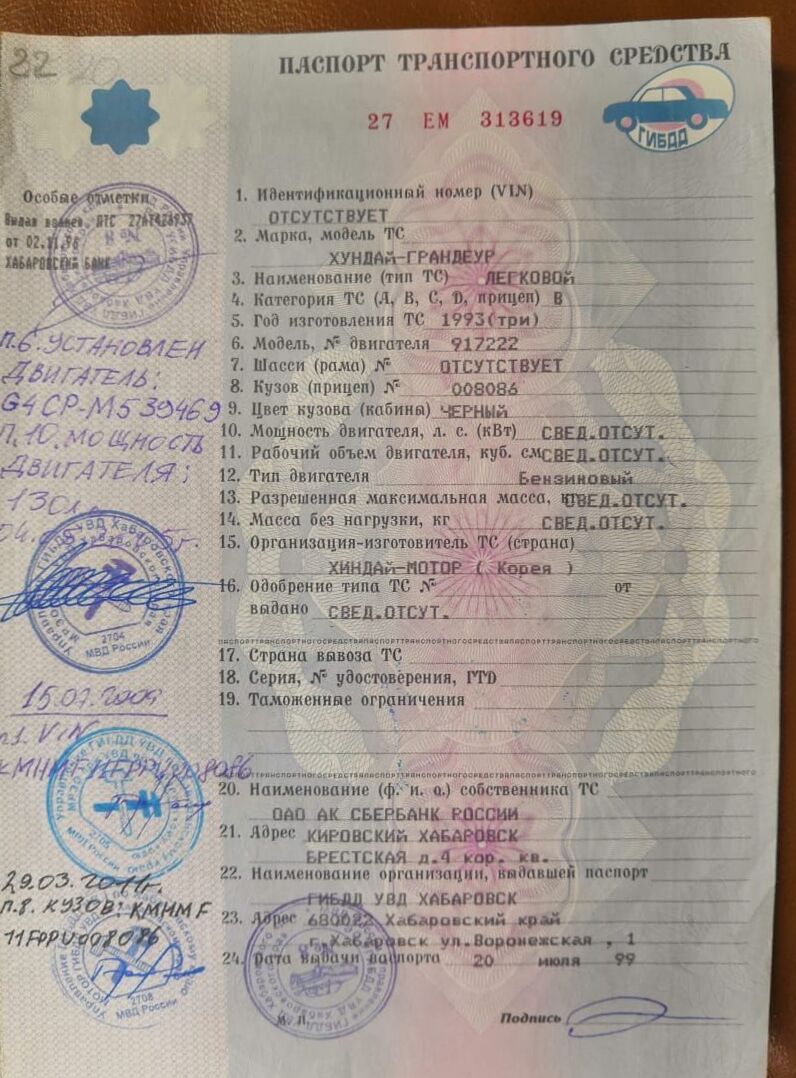 22 20
ПАСПОРТ ТРАНСПОРТНОГО СРЕДСТВА
27 ЕМ 313619
ГИБДД
Особые отметки
Выдан взамен. ПТС
от 02.11.98
ХАБАРОВСКИЙ БАНК
П.6. УСТАНОВЛЕН
ДВИГАТЕЛЬ:
G4CP-M539469
П.10. МОЩНОСТЬ
ДВИГАТЕЛЯ:
130л.
2704
МВД России
15.07.2009
п.1. VIN
2705
МВД России
29.03.2011г.
п.8. КУЗОВ: KMHMF
11FPPU008086
2708
МВД России
1. Идентификационный номер (VIN)
ОТСУТСТВУЕТ
2. Марка, модель ТС
ХУНДАЙ-ГРАНДЕУР
3. Наименование (тип ТС) ЛЕГКОВОЙ
4. Категория ТС (A, B, C, D, прицеп) B
5. Год изготовления ТС 1993(три)
6. Модель, № двигателя 917222
7. Шасси (рама) № ОТСУТСТВУЕТ
8. Кузов (прицеп) № 008086
9. Цвет кузова (кабины) ЧЕРНЫЙ
10. Мощность двигателя, л. с. (кВт) СВЕД.ОТСУТ.
11. Рабочий объем двигателя, куб. см СВЕД.ОТСУТ.
12. Тип двигателя Бензиновый
13. Разрешенная максимальная масса, кг СВЕД.ОТСУТ.
14. Масса без нагрузки, кг СВЕД.ОТСУТ.
15. Организация-изготовитель ТС (страна)
ХИНДАЙ-МОТОР ( Корея )
16. Одобрение типа ТС № от
выдано СВЕД.ОТСУТ.
17. Страна вывоза ТС
18. Серия, № удостоверения, ГТD
19. Таможенные ограничения
20. Наименование (ф. и. о.) собственника ТС
ОАО АК СБЕРБАНК РОССИИ
21. Адрес КИРОВСКИЙ ХАБАРОВСК
БРЕСТСКАЯ д.4 кор. кв.
22. Наименование организации, выдавшей паспорт
ГИБДД УВД ХАБАРОВСК
23. Адрес 680022 Хабаровский край
г.Хабаровск ул.Воронежская , 1
24. Дата выдачи паспорта 20 июля 99
М. П. Подпись